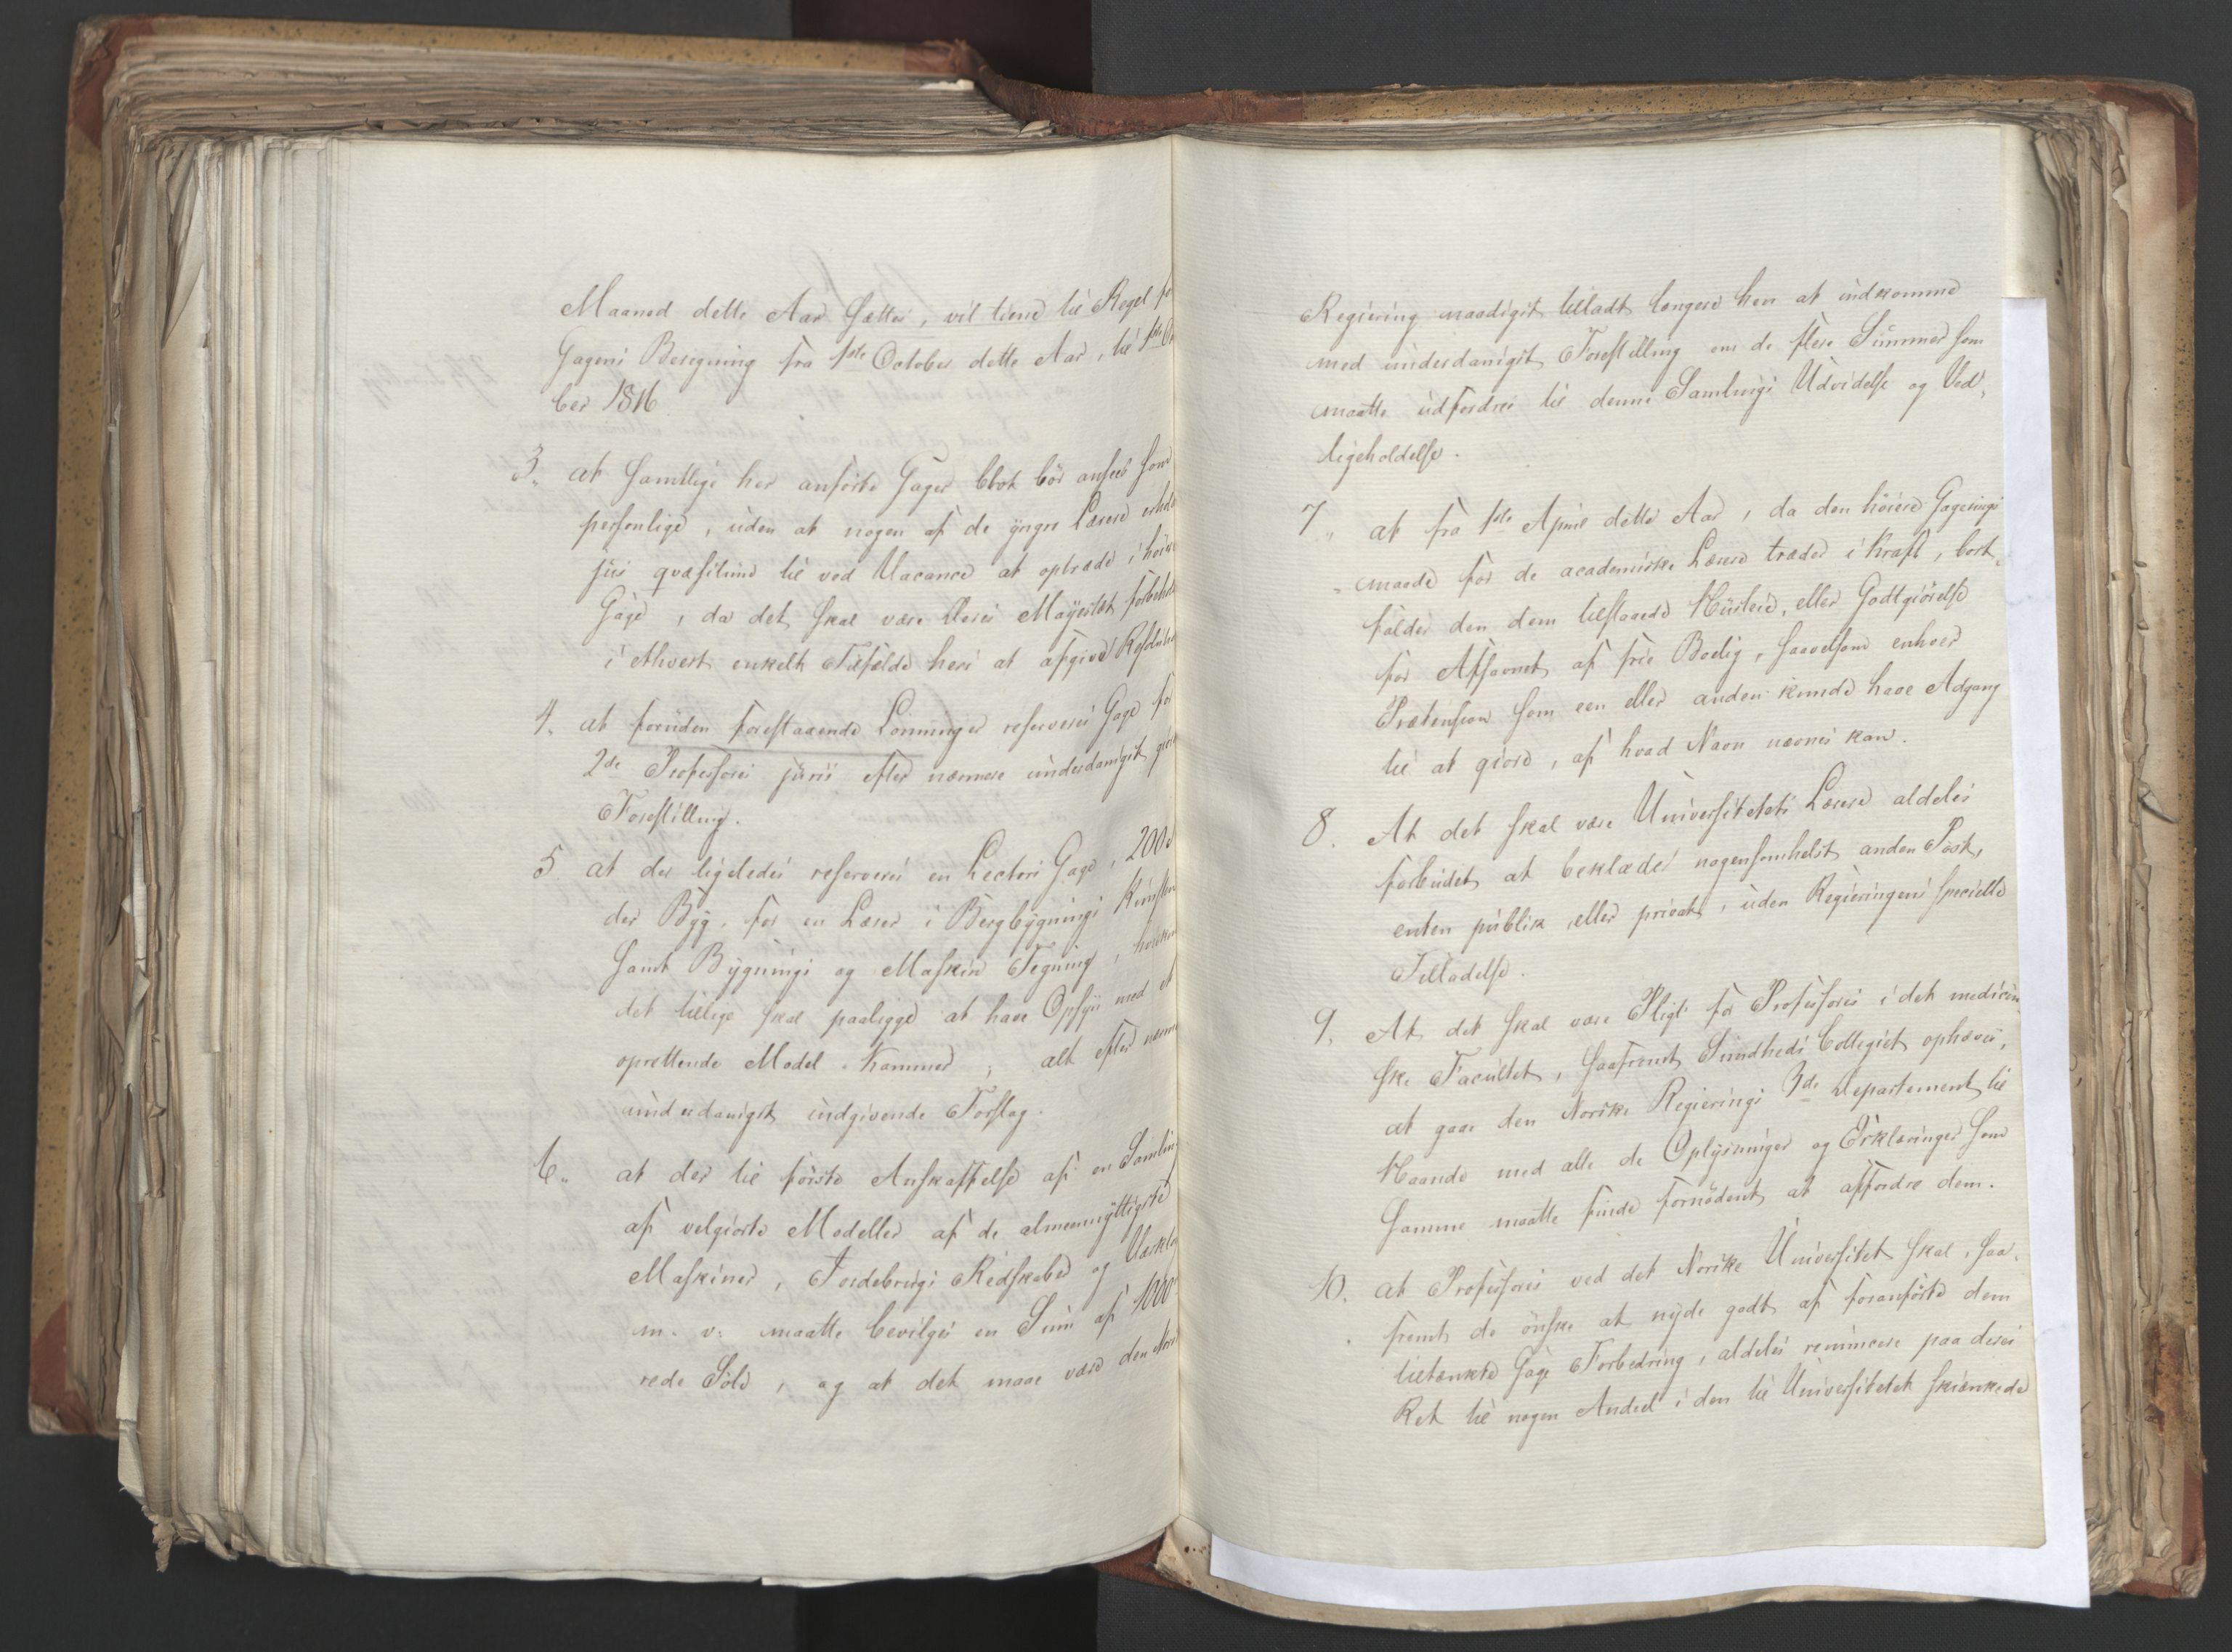 Maaned dette Aar sættes, vil tiene til Regel for
Gagens Beregning fra 1ste October dette Aar, til 1ste Oc
ber 1816
3. at samtlige her anførte Gager blot bør ansees som
personlige, uden at nogen af de yngre Lærere erholde
jus quæsitum til ved Vacance at optræde i høiere
Gage, da det skal være Deres Majestæt forbeholdt
i ethvert enkelt Tilfælde heri at afgive Resolution
4. at foruden forestaaende Lønninger reserveres Gage for
2de Professores juris efter nærmere underdanigst
Forestilling.
5. at der ligeledes reserveres en Lectors Gage, 200
der Byg, for en Lærer i Bergbygnings Kunsten
samt Bygnings og Maskin Tegning, hvilken
det tillige skal paaligge at have Opsyn med et
oprettende Model-Kammer; alt efter nærmere
underdanigst indgivende Forslag.
6. at der til første Anskaffelse af en Samling
af velgiorte Modeller af de almeennyttigste
Maskiner, Jordbrugs Redskaber og Værktøi
m. v. maatte bevilges en Sum af 1000
rede Sølv, og at det maae være den Norske
Regiering naadigst tilladt længere hen at indkomme
med underdanigst Forestilling om de flere Summer som
maatte udfordres til denne Samlings Udvidelse og Ved-
ligeholdelse.
7. at fra 1ste April dette Aar, da den høiere Gagerings-
maade for de academiske Lærere træder i Kraft, bort-
falder den dem tilstaaede Huusleie, eller Godtgiørelse
for Afsavnet af frie Bolig, saavelsom enhver
Prætension som een eller anden kunde have Adgang
til at giøre, af hvad Navn nævnes kan.
8. At det skal være Universitetets Lærere aldeles
forbudet at beklæde nogensomhelst anden Post,
enten publik eller privat, uden Regieringens specielle
Tilladelse.
9. At det skal være Pligt for Professores i det medicin-
ske Facultet, saafremt Sundheds Collegiet ophæves,
at gaae den Norske Regierings 3de Departement til
Haande med alle de Oplysninger og Erklæringer som
samme maatte finde fornødent at affordre dem.
10. at Professores ved det Norske Universitet skal, saa-
fremt de ønske at nyde godt af foranførte dem
tiltænkte Gage Forbedring, aldeles renuncere paa deres
Ret til nogen Andeel i den til Universitetet skiænkede